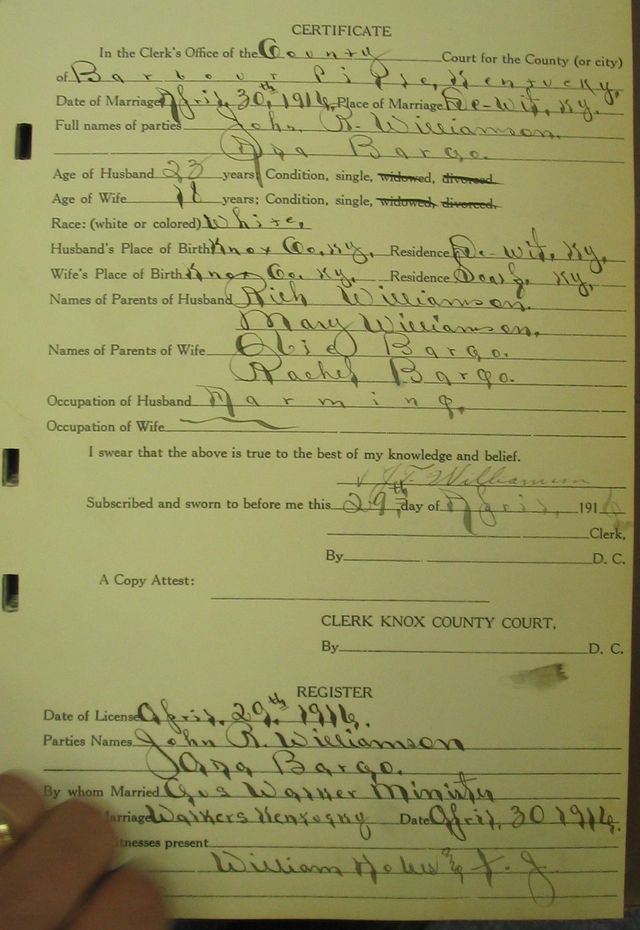 CERTIFICATE
In the Clerk's Office of the County Court for the County (or city)
of Barbourville, Kentucky,
Date of Marriage April, 30,th 1916, Place of Marriage De-Wit, Ky.
Full names of parties John R. Williamson.
Bargo.
Age of Husband 23 years; Condition, single, widowed, divorced
Age of Wife 18 years; Condition, single, widowed, divorced.
Race: (white or colored) White,
Husband's Place of Birth Knox Co, Ky, Residence De-Wit, Ky,
Wife's Place of Birth Knox Co. Ky. Residence Ky,
Names of Parents of Husband Rich Williamson.
Mary Williamson,
Names of Parents of Wife Bargo.
Rachel Bargo.
Occupation of Husband Farming,
Occupation of Wife
I swear that the above is true to the best of my knowledge and belief.
Williamson
Subscribed and sworn to before me this 29,th day of April, 1916
Clerk,
By D. C.
A Copy Attest:
CLERK KNOX COUNTY COURT,
By D. C.
REGISTER
Date of License April, 29,th 1916,
Parties Names John R. Williamson
Bargo.
By whom Married Minister
Marriage Walkers Kentucky Date April, 30 1916,
itnesses present
William